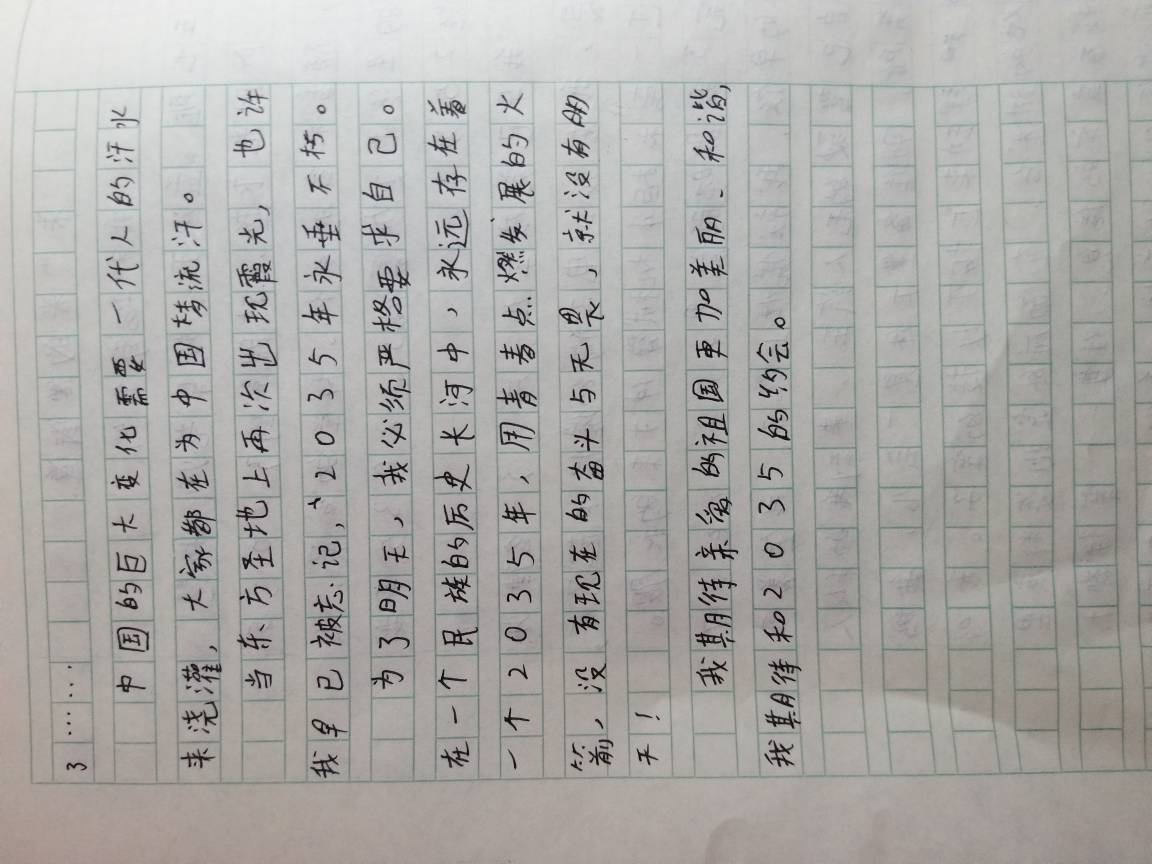 3……
中国的巨大变化需要一代人的汗水
来浇灌，大家都在为中国梦流汗。
当东方圣地上再次出现霞光，也许
我早已被忘记，2035年永垂不朽。
为了明天，我必须严格要求自己。
在一个民族的历史长河中，永远存在着
一个2035年，用青春点燃发展的火
箭，没有现在的奋斗与无畏，就没有明
天！
我期待亲爱的祖国更加美丽、和谐，
我期待和2035的约会。